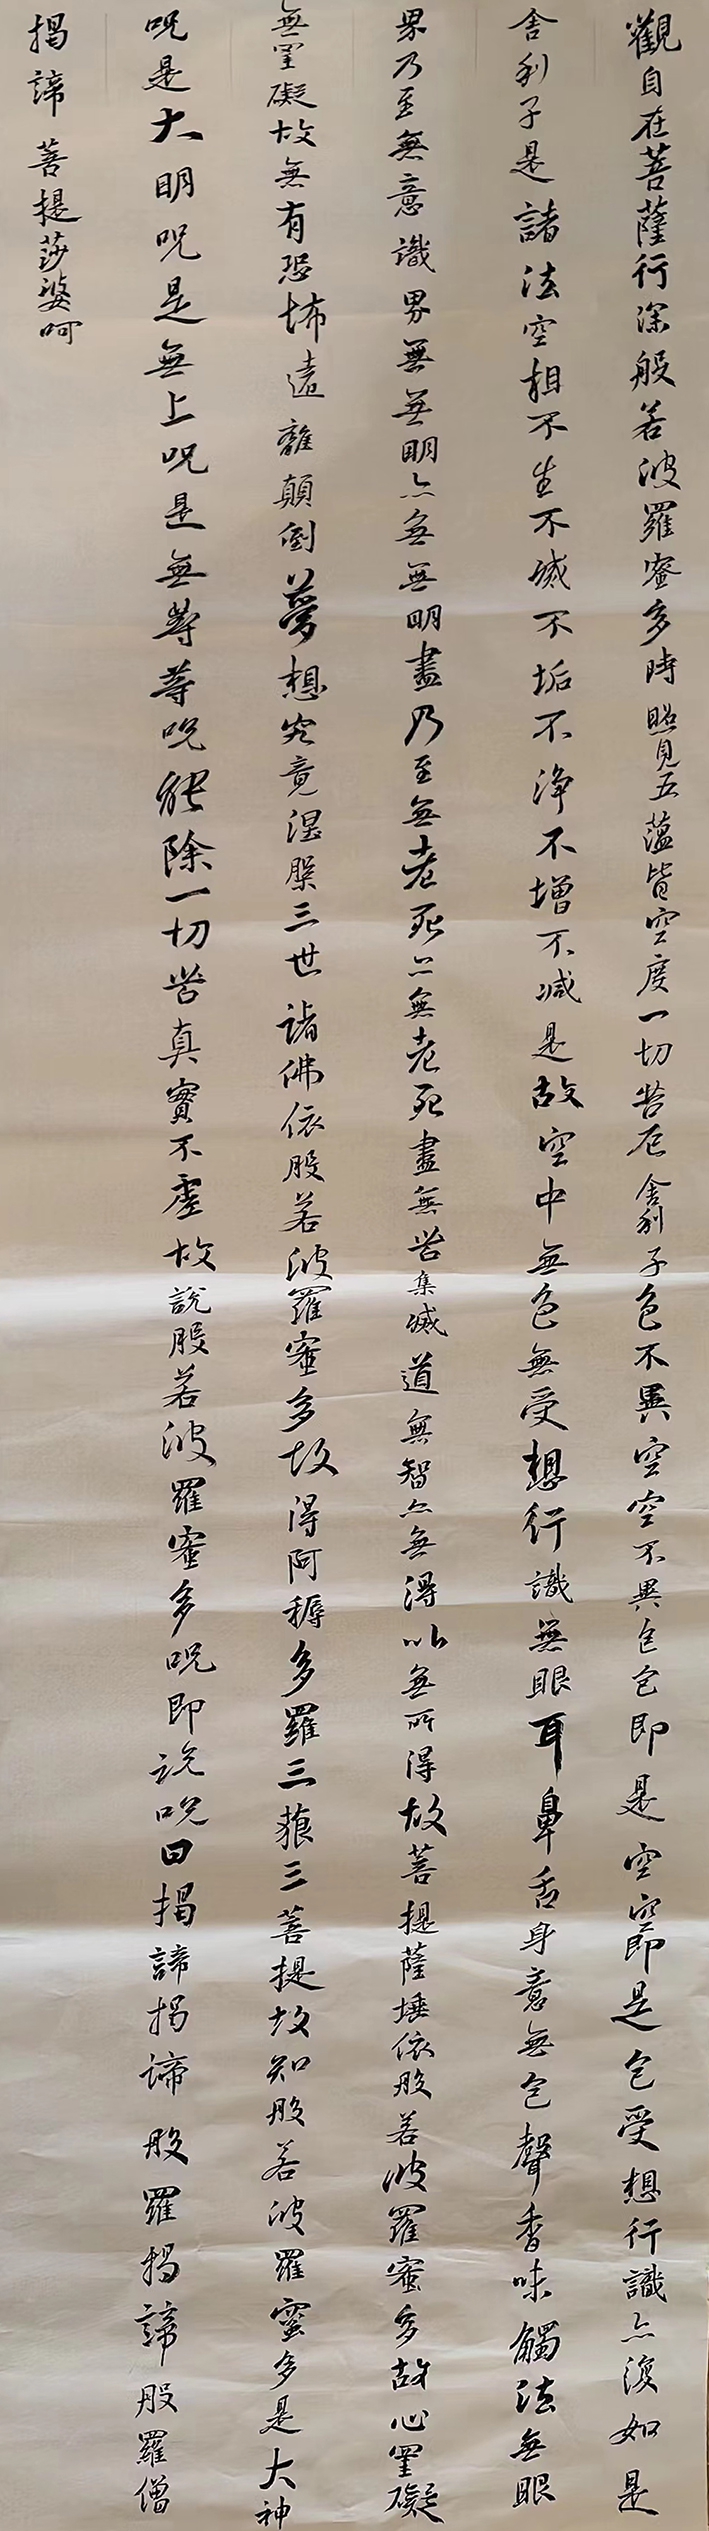 觀自在菩薩行深般若波羅蜜多時照見五蘊皆空度一切苦厄舍利子色不異空空不異色色即是空空即是色受想行識亦復如是
舍利子是諸法空相不生不滅不垢不淨不增不減是故空中無色無受想行識無眼耳鼻舌身意無色聲香味觸法無眼
界乃至無意識界無無明亦無無明盡乃至無老死亦無老死盡無苦集滅道無智亦無得以無所得故菩提薩埵依般若波羅蜜多故心罣礙
無罣礙故無有恐怖遠離顛倒夢想究竟涅槃三世諸佛依般若波羅蜜多故得阿耨多羅三藐三菩提故知般若波羅蜜多是大神
呪是大明呪是無上呪是無等等呪能除一切苦真實不虛故說般若波羅蜜多呪即說呪曰揭諦揭諦般羅揭諦般羅僧
揭諦菩提莎婆呵